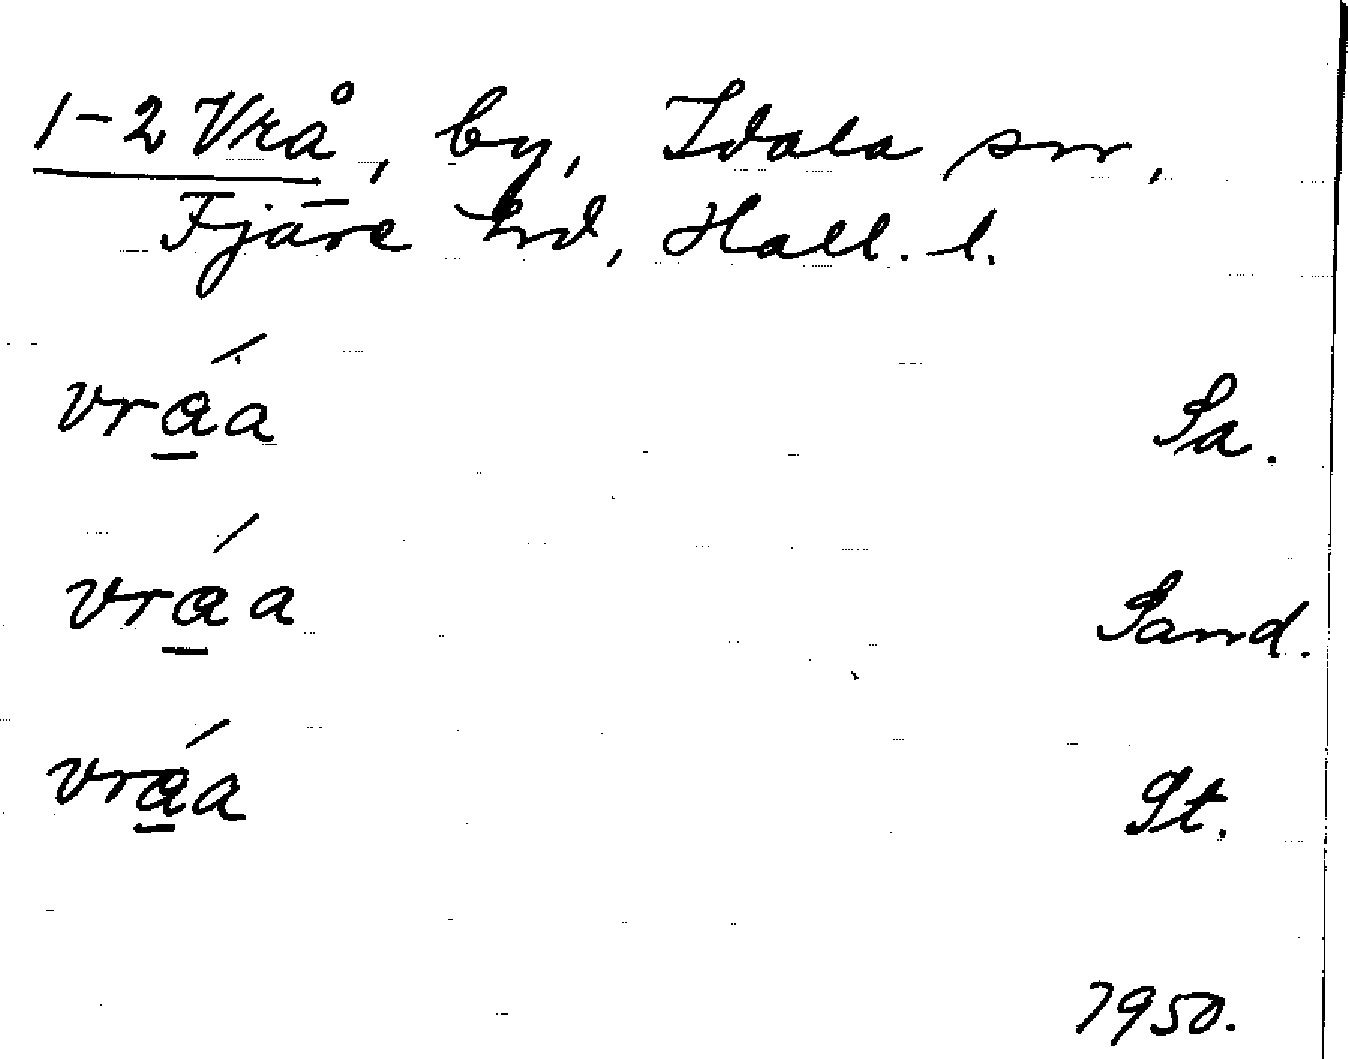 1-2 Vrå, by, Idala sn,
Fjäre hd, Hall. l.
vráa Sa.
vráa Sand.
vráa St.
1950.